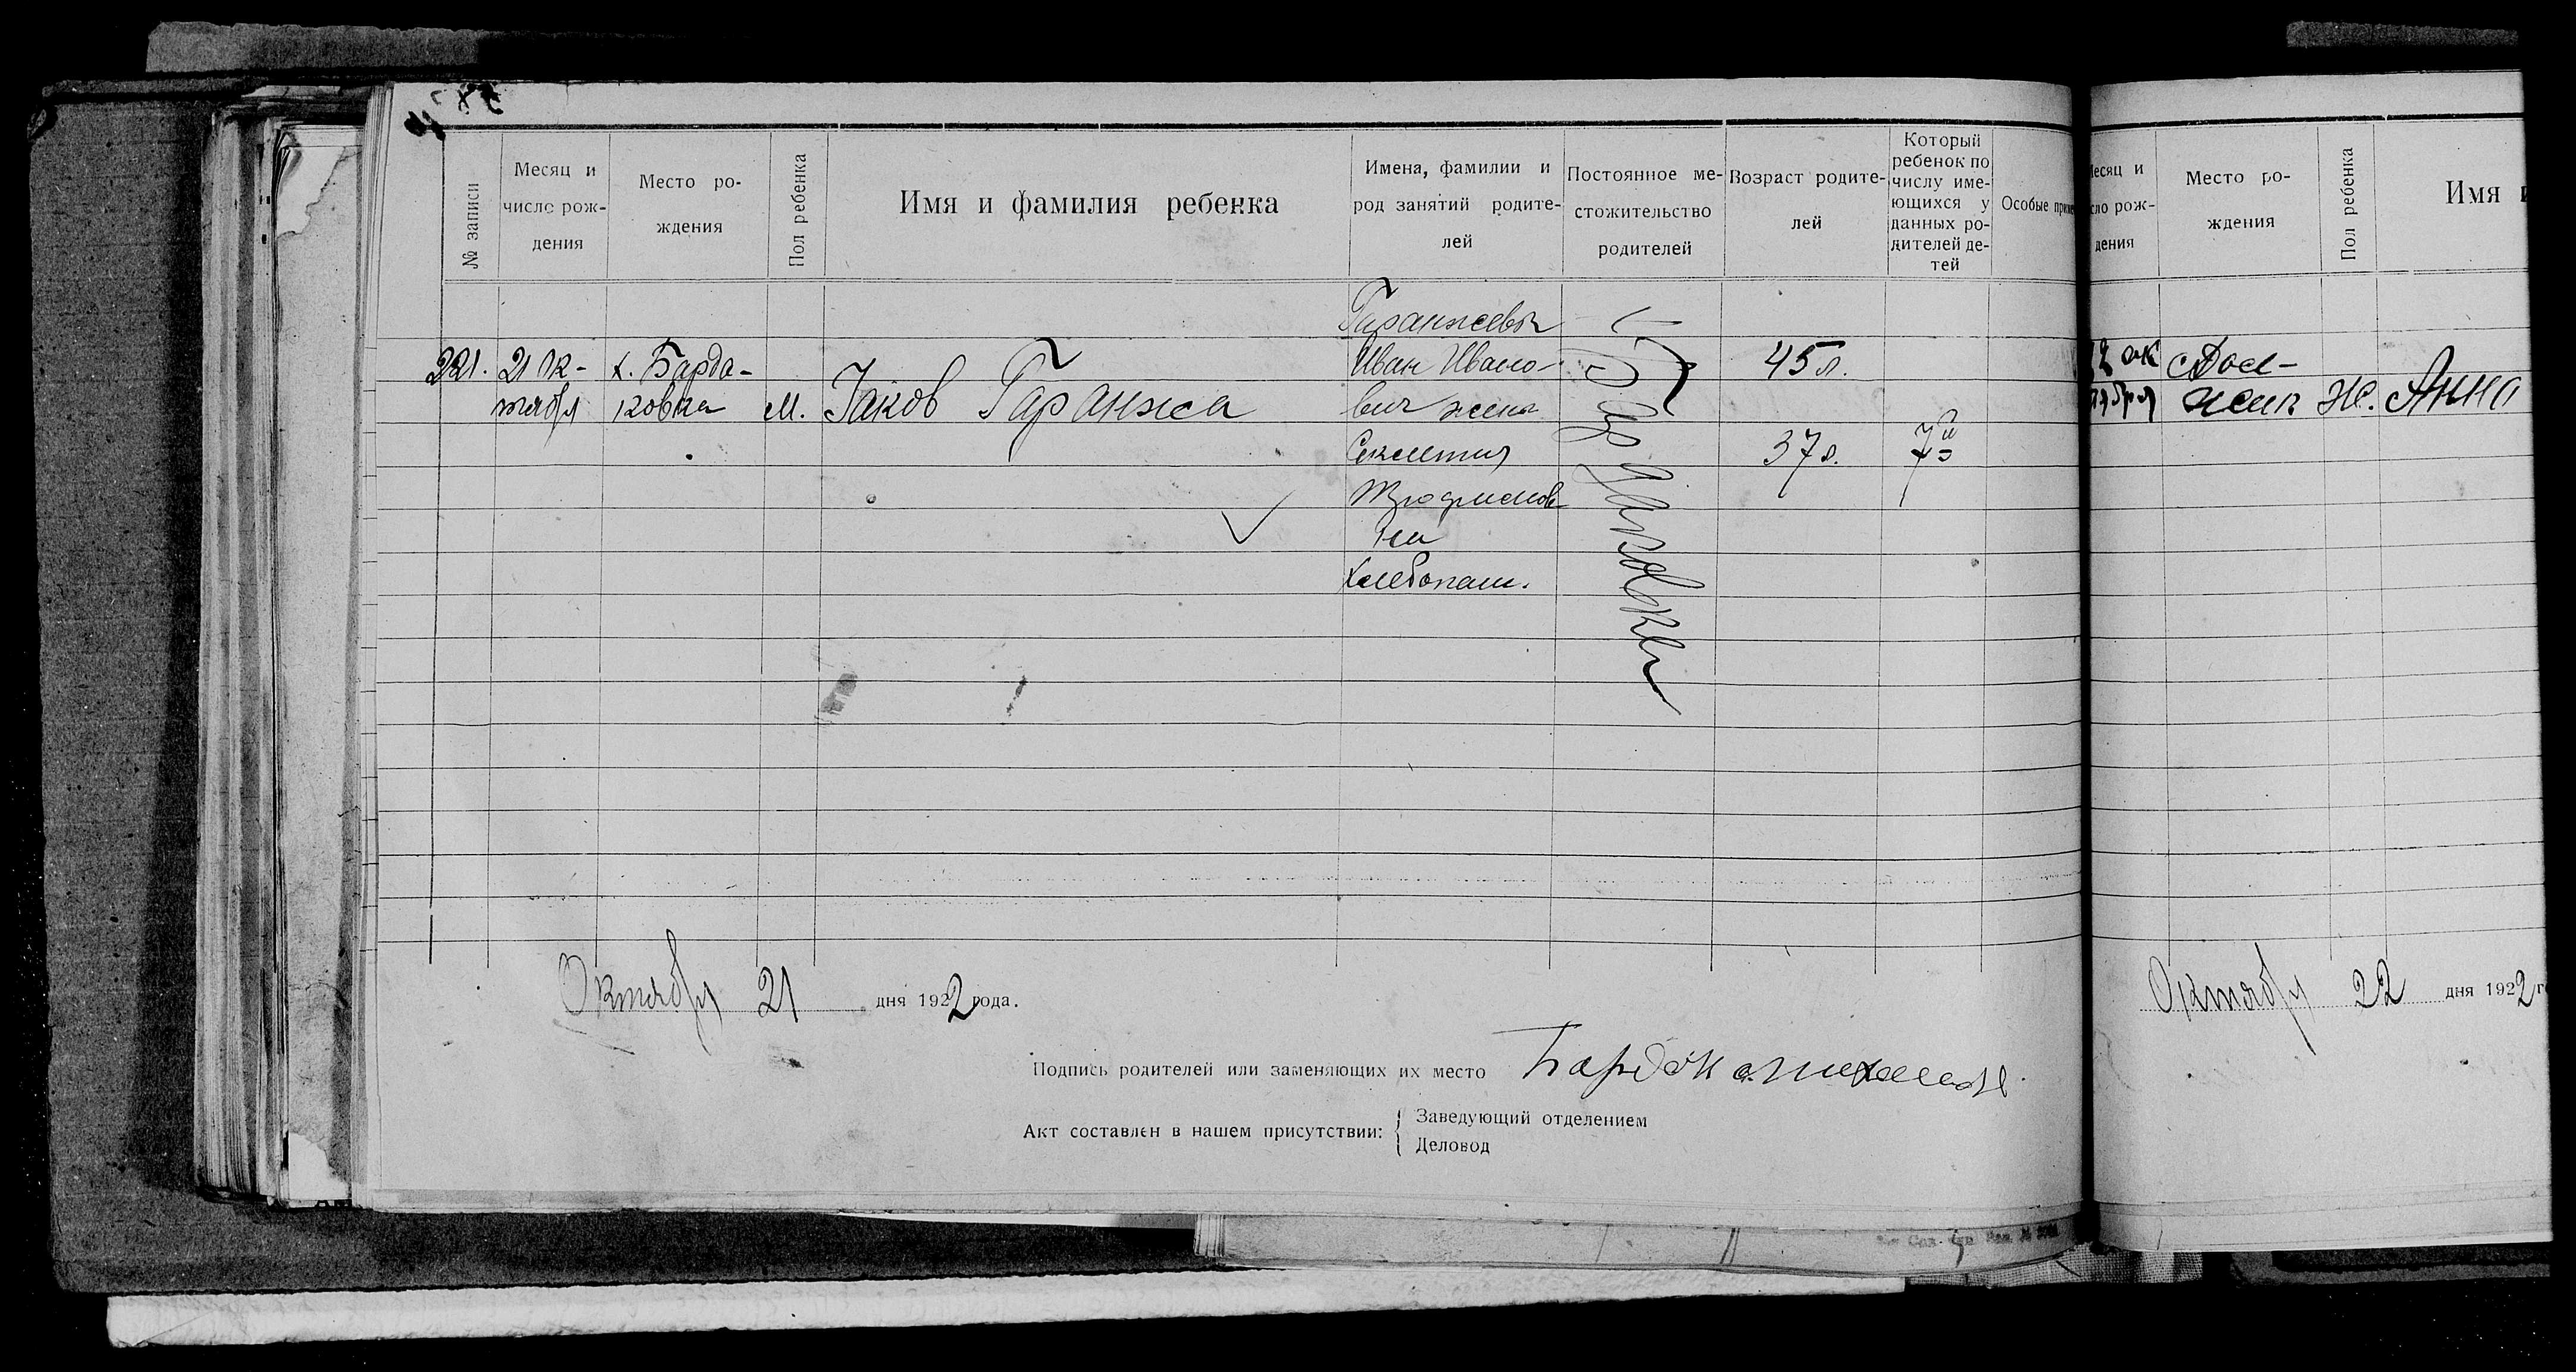 № записи
Месяц и
число рож-
дения
Место ро-
ждения
Пол ребенка
Имя и фамилия ребенка
Имена, фамилии и
род занятий родите-
лей
Постоянное ме-
стожительство
родителей
Возраст родите-
лей
Который
ребенок по
числу име-
ющихся у
данных ро-
дителей де-
тей
Особые
221.
21 Ок-
тября
х. Барда-
ковка
М.
Іаков Гаранжа
Гаранжевы
Иван Ивано-
вич жена
на
Хлебопаш.
45 л.
37 л.
7й
Октября 21 дня 1922 года.
Подпись родителей или заменяющих их место
Акт составлен в нашем присутствии:
Заведующий отделением
Деловод
Месяц и
число рож-
дения
Место ро-
ждения
Пол ребенка
Имя и
ок
тября
Ж. Анна
Октября 22 дня 1922